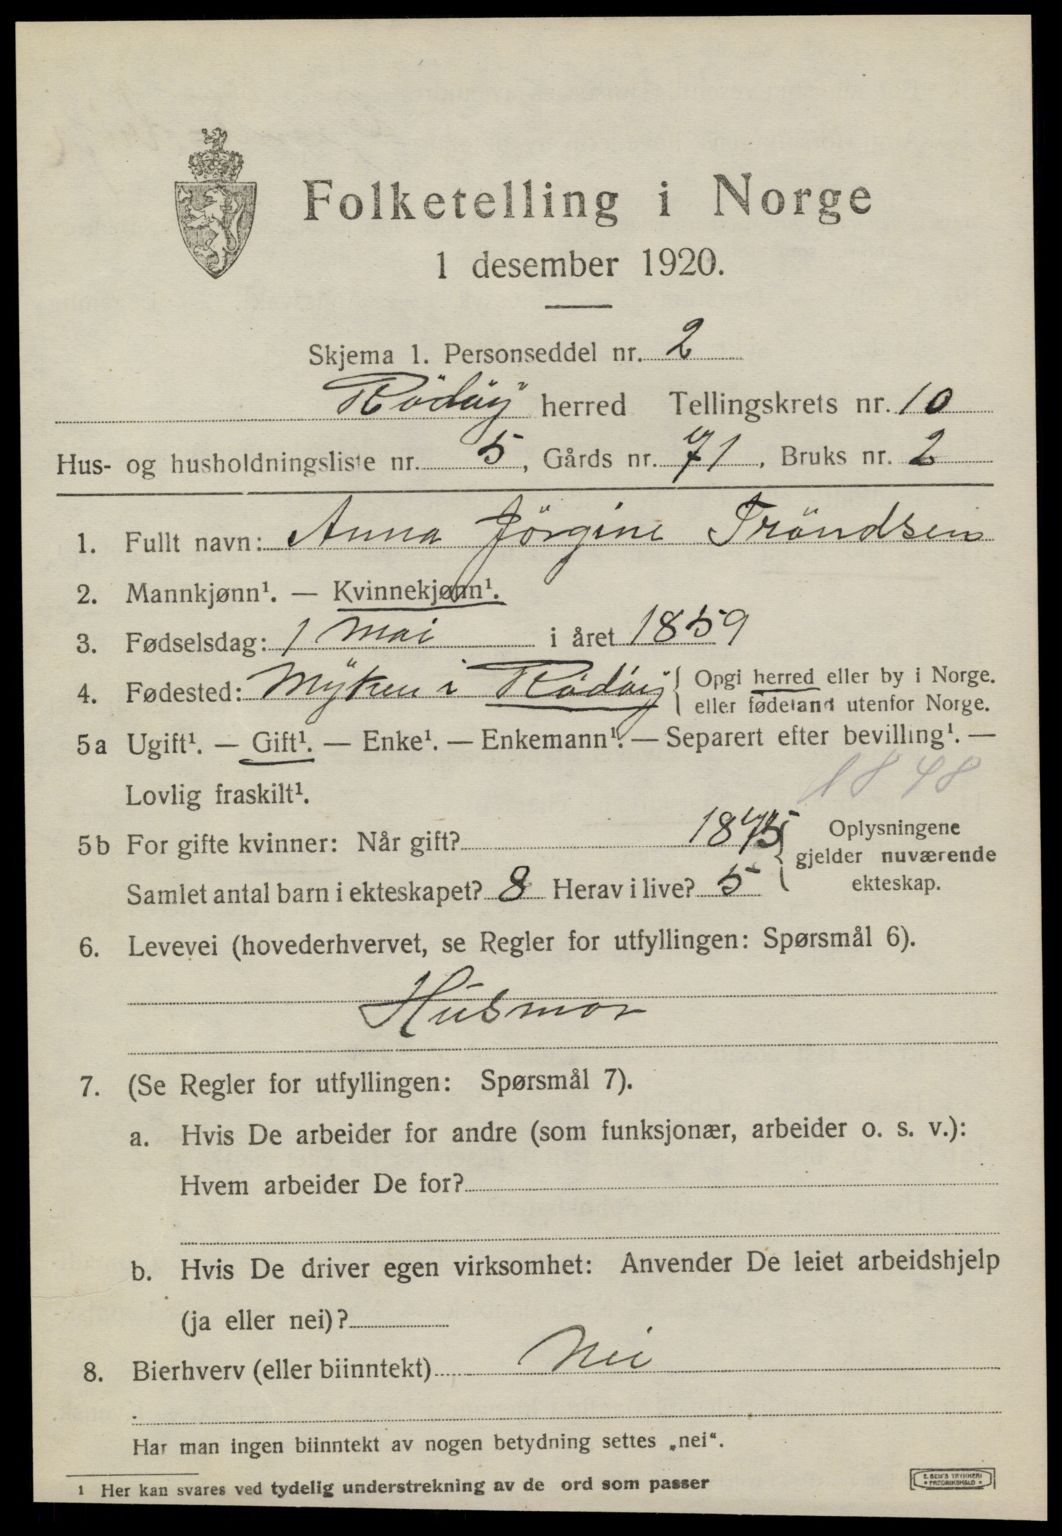 Folketelling i Norge
1 desember 1920.
Skjema 1. Personseddel nr. 2
Rödöy herred Tellingskrets nr. 10
Hus- og husholdningsliste nr. 5, Gårds nr. 71, Bruks nr. 2
1. Fullt navn: Anna Jörgine Tröndsen
2. Mannkjønn¹. — Kvinnekjønn¹.
3. Fødselsdag: 1 Mai i året 1859
4. Fødested: Myken i Rödöy { Opgi herred eller by i Norge.
eller fødeland utenfor Norge.
5a Ugift¹. — Gift¹. — Enke¹. — Enkemann¹. — Separert efter bevilling¹. —
Lovlig fraskilt¹.
1848
5b For gifte kvinner: Når gift? { Oplysningene
gjelder nuværende
Samlet antal barn i ekteskapet? 8 Herav i live? 5 ekteskap.
6. Levevei (hovederhvervet, se Regler for utfyllingen: Spørsmål 6).
Husmor
7. (Se Regler for utfyllingen: Spørsmål 7).
a. Hvis De arbeider for andre (som funksjonær, arbeider o. s. v.):
Hvem arbeider De for?
b. Hvis De driver egen virksomhet: Anvender De leiet arbeidshjelp
(ja eller nei)?
8. Bierhverv (eller biinntekt) Nei
Har man ingen biinntekt av nogen betydning settes „nei“.
1 Her kan svares ved tydelig understrekning av de ord som passer